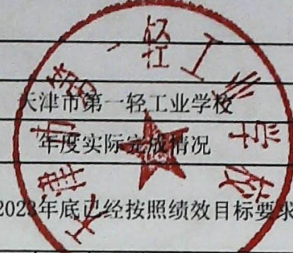 天津市第一轻工业学校
天津市第一轻工业学校
年度实际完成情况
2023年底已经按照绩效目标要求